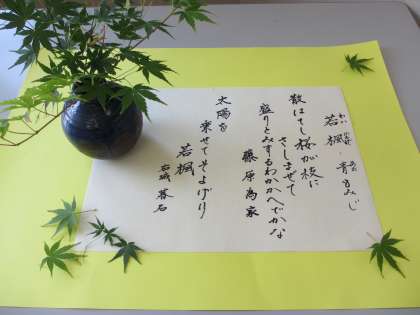 若楓・青もみじ
わか かえで あお
散はてし桜が枝に
さしまぜて
盛りとみするわかかへでかな
藤原為家
太陽を
乗せてそよげり
若楓
右城 暮石